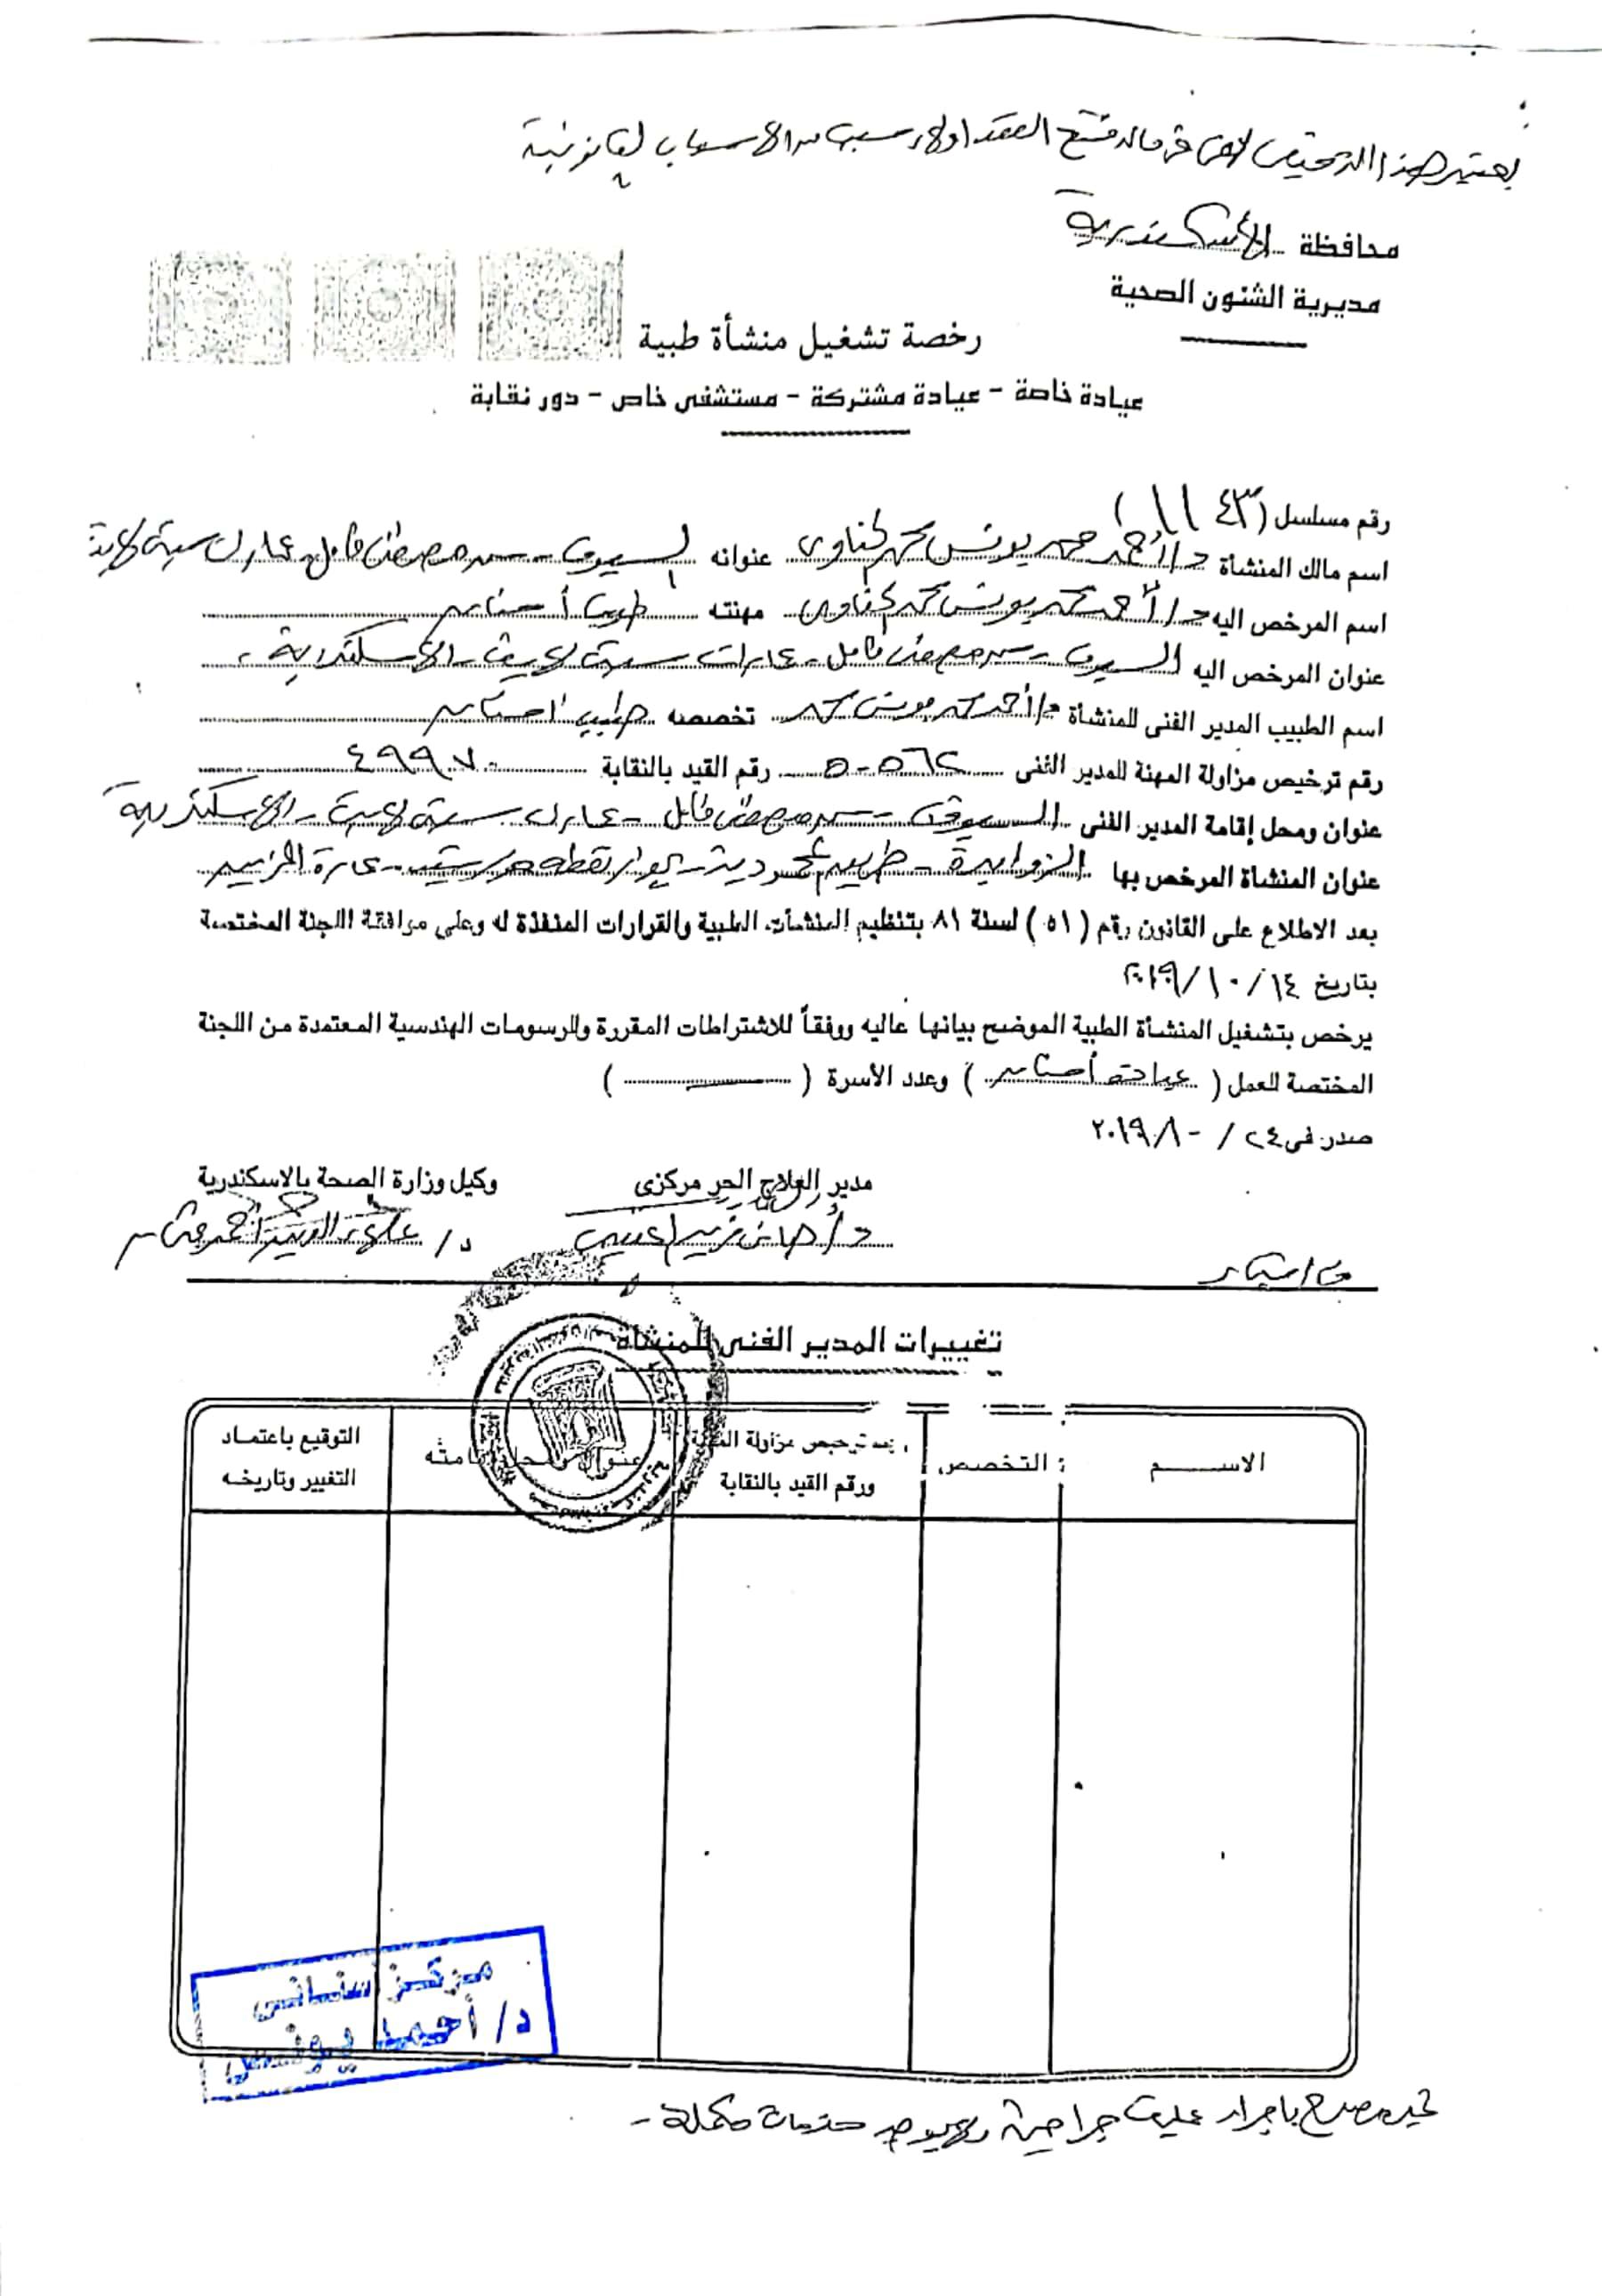 يعتبر هذا الترخيص لاغى فى حالة فسخ العقد او لأى سبب من الأسباب القانونية
محافظة الأسكندرية
مديرية الشئون الصحية
رخصة تشغيل منشأة طبية
عيادة خاصة - عيادة مشتركة - مستشفى خاص - دور نقابة
رقم مسلسل (١١٤٣)
اسم مالك المنشأة د/أحمد محمد يونس محمد عنوانه السيوف - مصطفى كامل - عمارات
اسم المرخص اليه د/أحمد محمد يونس محمد مهنته طبيب أسنان
عنوان المرخص اليه السيوف - مصطفى كامل - عمارات - الأسكندرية
اسم الطبيب المدير الفنى للمنشأة د/أحمد محمد يونس محمد تخصصه طبيب أسنان
رقم ترخيص مزاولة المهنة للمدير الفنى رقم القيد بالنقابة
عنوان ومحل إقامة المدير الفنى السيوف - مصطفى كامل - عمارات - الأسكندرية
عنوان المنشأة المرخص بها الزوايدة - طريق المحمودية - بجوار نقطة - عمارة
بعد الاطلاع على القانون رقم (٥١) لسنة ٨١ بتنظيم المنشآت الطبية والقرارات المنفذة له وعلى موافقة اللجنة المختصة
بتاريخ ١٤/١٠/٢٠١٩
يرخص بتشغيل المنشأة الطبية الموضح بيانها عاليه ووفقاً للاشتراطات المقررة والرسومات الهندسية المعتمدة من اللجنة
المختصة للعمل (عيادة أسنان) وعدد الأسرة (ـــــ)
صدر فى ٢٤/١٠/٢٠١٩
مدير العلاج الحر مركزى وكيل وزارة الصحة بالاسكندرية
د/ د/ علاء الدين أحمد عثمان
تغييرات المدير الفنى للمنشأة
الاســـم التخصص ترخيص مزاولة ورقم القيد بالنقابة عنوان ومحل إقامته التوقيع باعتماد التغيير وتاريخه
مركز سنانى
د/ أحمد يونس
غير مصرح باجراء عمليات جراحية ولا يوجد خدمات مكملة -